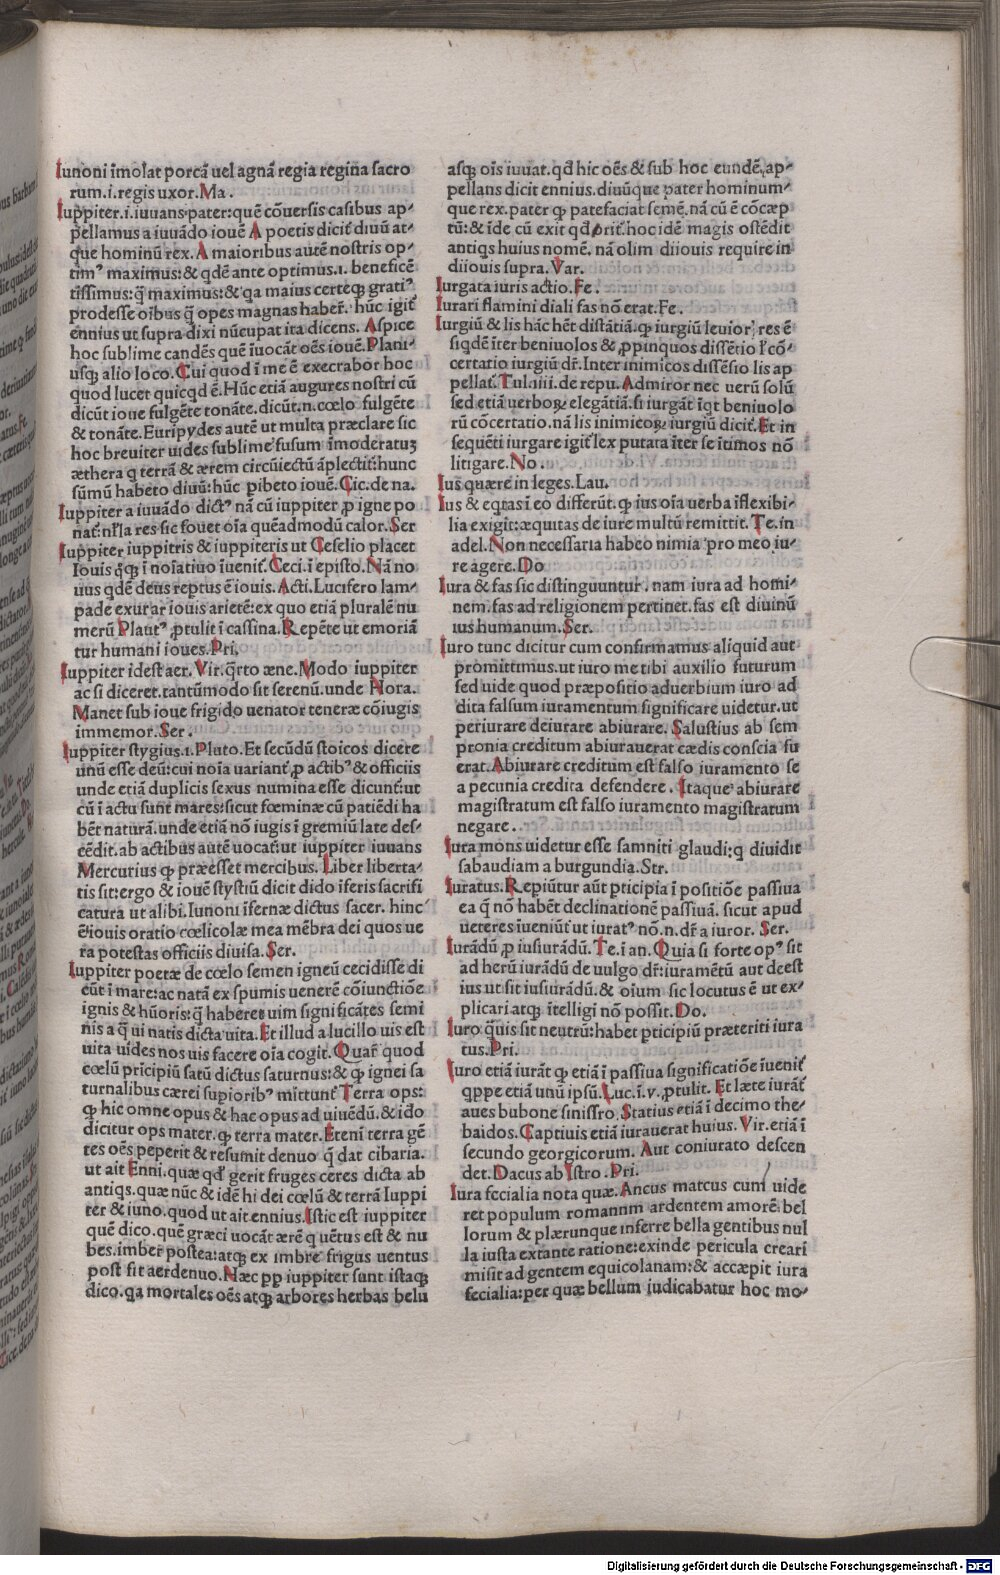 Iunoni īmolat porcā uel agnā regia regina sacro
rum.i.regis uxor.Ma.
Iuppiter.i.iuuans pater:quē cōuersis casibus ap-
pellamus a iuuādo iouē A poetis dicit̄ diuū at-
que hominū rex. A maioribus autē nostris op-
timꝰ maximus:& qdē ante optimus.i. beneficē
tissimus:q̄ maximus:& qa maius certeqꝫ gratiꝰ
prodesse oībus q̄ opes magnas haber̄. hūc igit̄
ennius ut supra dixi nūcupat ita dicens. Aspice
hoc sublime candēs quē iuocāt oēs iouē.Plani-
usqꝫ alio loco. Cui quod ī me ē execrabor hoc
quod lucet quicqd ē. Hūc etiā augures nostri cū
dicūt ioue fulgēte tonāte. dicūt.n.cœlo fulgēte
& tonāte. Euripydes autē ut multa præclare sic
hoc breuiter uides sublime fusum īmoderatuꝫ
æthera q terrā & ærem circūiectū āplectit̄:hunc
sūmū habeto diuū:hūc p̱ibeto iouē. Cic.de na.
Iuppiter a iuuādo dictꝰ nā cū iuppiter ꝓ igne po
nat̄ nr̄la res sic fouet oīa quēadmodū calor. Ser
Iuppiter iuppitris & iuppiteris ut Ceselio placet
Iouis q̄qꝫ ī noīatiuo īuenit̄. Ceci.ī episto. Nā no
uus qdē deus reptus ē iouis. Acti. Lucifero lam-
pade exurar iouis arietē:ex quo etiā pluralē nu
merū Plautꝰ ꝓtulit ī cassina. Repēte ut emoriā
tur humani ioues. Pri.
Iuppiter idest aer. Vir. q̄rto æne. Modo iuppiter
ac si diceret. tantūmodo sit serenū. unde Nora.
Manet sub ioue frigido uenator teneræ cōiugis
immemor. Ser.
Iuppiter stygius.i.Pluto. Et secūdū stoicos dicere
unū esse deū:cui noīa uariant̄ ꝓ actibꝰ & officiis
unde etiā duplicis sexus numina esse dicunt̄:ut
cū ī actu sunt mares:sicut fœminæ cū patiēdi ha
bēt naturā. unde etiā nō iugis ī gremiū late des-
cēdit. ab actibus autē uocat̄:ut iuppiter iuuans
Mercurius qꝫ præesset mercibus. Liber liberta-
tis sit:ergo & iouē stystiū dicit dido īferis sacrifi
catura ut alibi. Iunoni īfernæ dictus sacer. hinc
ē iouis oratio cœlicolæ mea mēbra dei quos ue
ra potestas officiis diuisa. Ser.
Iuppiter poetæ de cœlo semen igneū cecidisse di
cūt ī mare:ac natā ex spumis uenerē cōiunctiōe
ignis & hūoris:q̄ haberes uim significātes semi
nis a q̄ ui natis dicta uita. Et illud a lucillo uis est
uita uides nos uis facere oīa cogit. Quar̄ quod
cœlū prīcipiū satū dictus saturnus:& qꝫ ignei sa
turnalibus cærei supioribꝰ mittunt̄ Terra ops:
qꝫ hic omne opus & hac opus ad uiuēdū. & ido
dicitur ops mater. qꝫ terra mater. Etenī terra gē
tes oēs peperit & resumit denuo q̄ dat cibaria.
ut ait Enni. quæ qd̄ gerit fruges ceres dicta ab
antiqs. quæ nūc & idē hi dei cœlū & terrā Iuppi
ter & iuno. quod ut ait ennius. Istic est iuppiter
quē dico. quē græci uocāt ærē q uētus est & nu
bes. imber postea:atqꝫ ex imbre frigus uentus
post fit aer denuo. Næc pp̱ iuppiter sunt istaqꝫ
dico. qa mortales oēs atqꝫ arbores herbas belu
asqꝫ oīs iuuat. qd̄ hic oēs & sub hoc eundē ap-
pellans dicit ennius. diuūque pater hominum-
que rex. pater qꝫ patefaciat semē. nā cū ē cōcæp
tū: & īde cū exit qd̄ orit̄. hoc idē magis ostēdit
antiqs huius nomē. nā olim diiouis require in
diiouis supra. Var.
Iurgata iuris actio. Fe.
Iurari flamini diali fas nō erat. Fe.
Iurgiū & lis hāc hēt distātiā. qꝫ iurgiū leuiorꝰ res ē
siqdē īter beniuolos & ꝓpinquos dissētio l̄ cō-
certatio iurgiū dr̄. Inter inimicos dissēsio lis ap
pellat̄. Tul.iiii.de repu. Admiror nec uerū solū
sed etiā uerboꝝ elegātiā. si iurgāt īqt beniuolo
rū cōcertatio. nā lis inimicoꝝ iurgiū dicit̄. Et in
sequēti iurgare igit̄ lex putara īter se itimos nō
litigare. No.
Ius quære in leges. Lau.
Ius & eqtas ī eo differūt. qꝫ ius oīa uerba īflexibi-
lia exigit:æquitas de iure multū remittit. Te. in
adel. Non necessaria habeo nimia pro meo iu-
re agere. Do
Iura & fas sic distinguuntur. nam iura ad homi-
nem. fas ad religionem pertinet. fas est diuinū
ius humanum. Ser.
Iuro tunc dicitur cum confirmamus aliquid aut
promittimus. ut iuro me tibi auxilio futurum
sed uide quod præpositio aduerbium iuro ad
dita falsum iuramentum significare uidetur. ut
periurare deiurare abiurare. Salustius ab sem
pronia creditum abiurauerat cædis conscia fu
erat. Abiurare creditum est falso iuramento se
a pecunia credita defendere. Itaque abiurare
magistratum est falso iuramento magistratum
negare.
Iura mons uidetur esse samniti glaudi:q diuidit
sabaudiam a burgundia. Str.
Iuratus. Repiūtur aūt pticipia ī positiōe passiua
ea q̄ nō habēt declinationē passiuā. sicut apud
ueteres īueniūt̄ ut iuratꝰ nō.n.dr̄ a iuror. Ser.
Iurādū ꝓ iusiurādū. Te. ī an. Quia si forte opꝰ sit
ad herū iurādū de uulgo dr̄:iuramētū aut deest
ius ut sit iusiurādū. & oīum sic locutus ē ut ex-
plicari atqꝫ ītelligi nō possit. Do.
Iuro q̄uis sit neutrū:habet pticipiū præteriti iura
tus. Pri.
Iuro etiā iurāt qꝫ etiā ī passiua significatiōe īuenit̄
qppe etiā unū ipsū. Luc.i.v. ꝓtulit. Et læte iurāt̄
aues bubone sinistro. Statius etiā ī decimo the-
baidos. Captiuis etiā iurauerat huius. Vir. etiā ī
secundo georgicorum. Aut coniurato descen
det. Dacus ab Istro. Pri.
Iura fecialia nota quæ. Ancus matcus cum uide
ret populum romanum ardentem amorē bel
lorum & plærunque inferre bella gentibus nul
la iusta extante ratione:exinde pericula creari
misit ad gentem equicolanam:& accæpit iura
fecialia:per quæ bellum iudicabatur hoc mo-
Digitalisierung gefördert durch die Deutsche Forschungsgemeinschaft - DFG